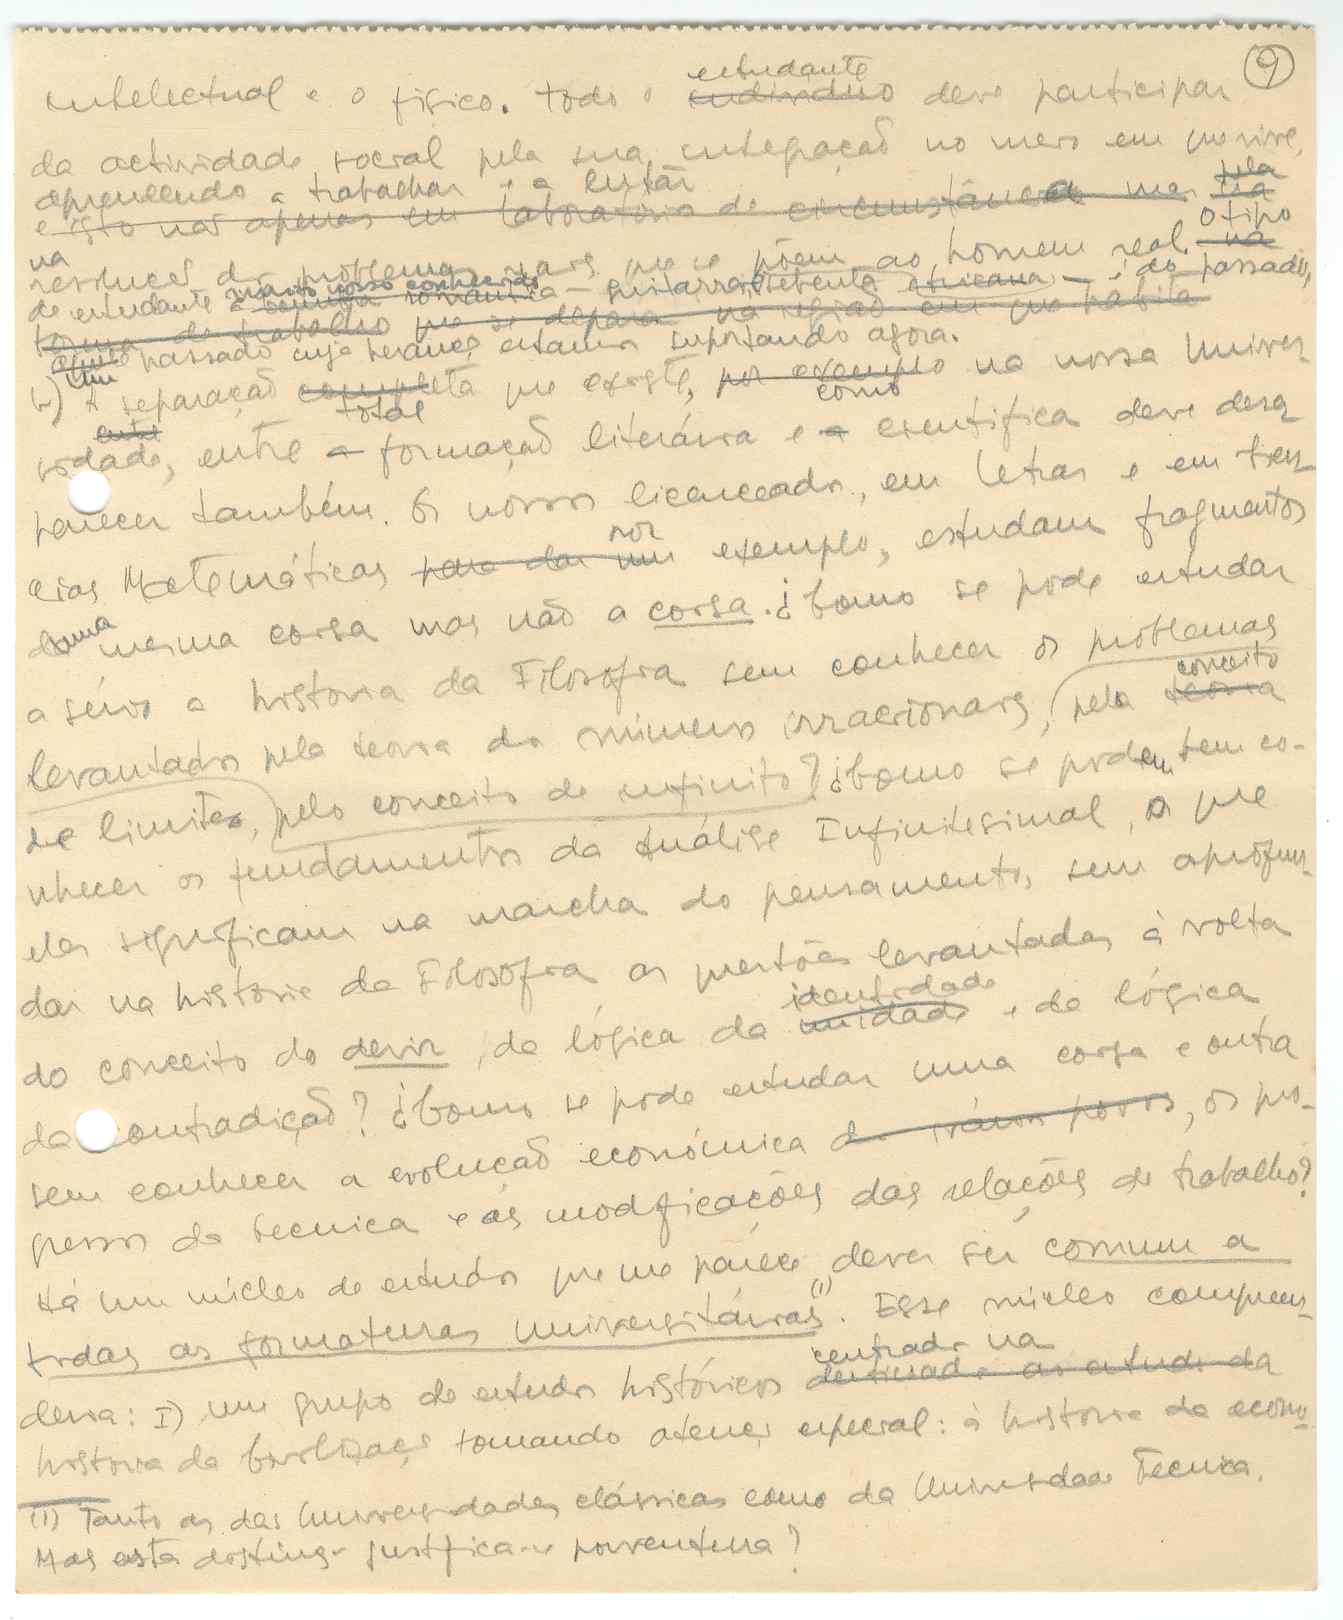 9
estudante
intelectual e o físico. Todo o individuo deve participar
da actividade social pela sua integração no meio em que vive,
aprendendo a trabalhar e a lutar
e isto não apenas em laboratório de circunstância mas
pela
na
resoluções dos problemas reais que se põem ao homem real. O tipo
de estudante muito nosso conhecido — é do passado,
forma de trabalho que se depara na região em que habita
um passado cuja herança estamos suportando agora.
b) A separação completa que existe, por exemplo na nossa Univer-
total como
sidade, entre a formação literária e a científica deve desa-
parecer também. Os nossos licenceados, em Letras e em Scien-
por
cias Matemáticas para dar um exemplo, estudam fragmentos
duma mesma coisa mas não a coisa. ¿Como se pode estudar
a sério a história da Filosofia sem conhecer os problemas
conceito
levantados pela teoria dos números irracionais, pelo teoria
de limite, pelo conceito de infinito? ¿Como se podem, sem co-
nhecer os fundamentos da Análise Infinitesimal, o que
eles significam na marcha do pensamento, sem aprofun-
dar na história da Filosofia as questões levantadas à volta
identidade
do conceito do devir, da lógica da unidade e da lógica
da contradição? ¿Como se pode estudar uma coisa e outra
sem conhecer a evolução económica dos vários povos, os pro-
gressos da técnica e as modificações das relações de trabalho?
Há um núcleo de estudos que me parece dever ser comum a
todas as formaturas universitárias (1). Esse núcleo compreen-
centrados na
deria: I) um grupo de estudos históricos destinados ao estudo da
história da Civilização tomando atenção especial: à história da econo-
(1) Tanto as das Universidades clássicas como da Universidade Técnica.
Mas esta distinção justifica-se porventura?